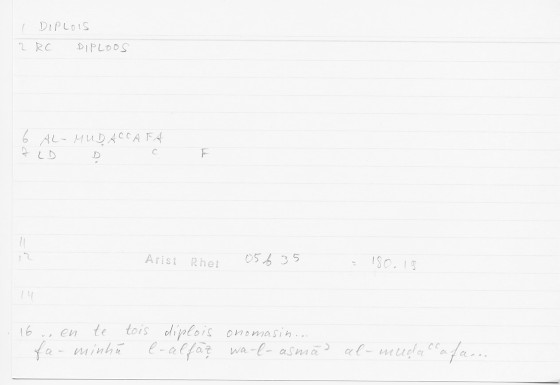 1 DIPLOIS
2 RC DIPLOOS
6 AL-MUḌAᶜᶜAFA
7 LD Ḍ C F
11
12 Arist Rhet 05b35 = 180.18
14
16 .. en te tois diplois onomasin..
fa-minhā l-alfāẓ wa-l-asmāʾ al-muḍaᶜᶜafa...